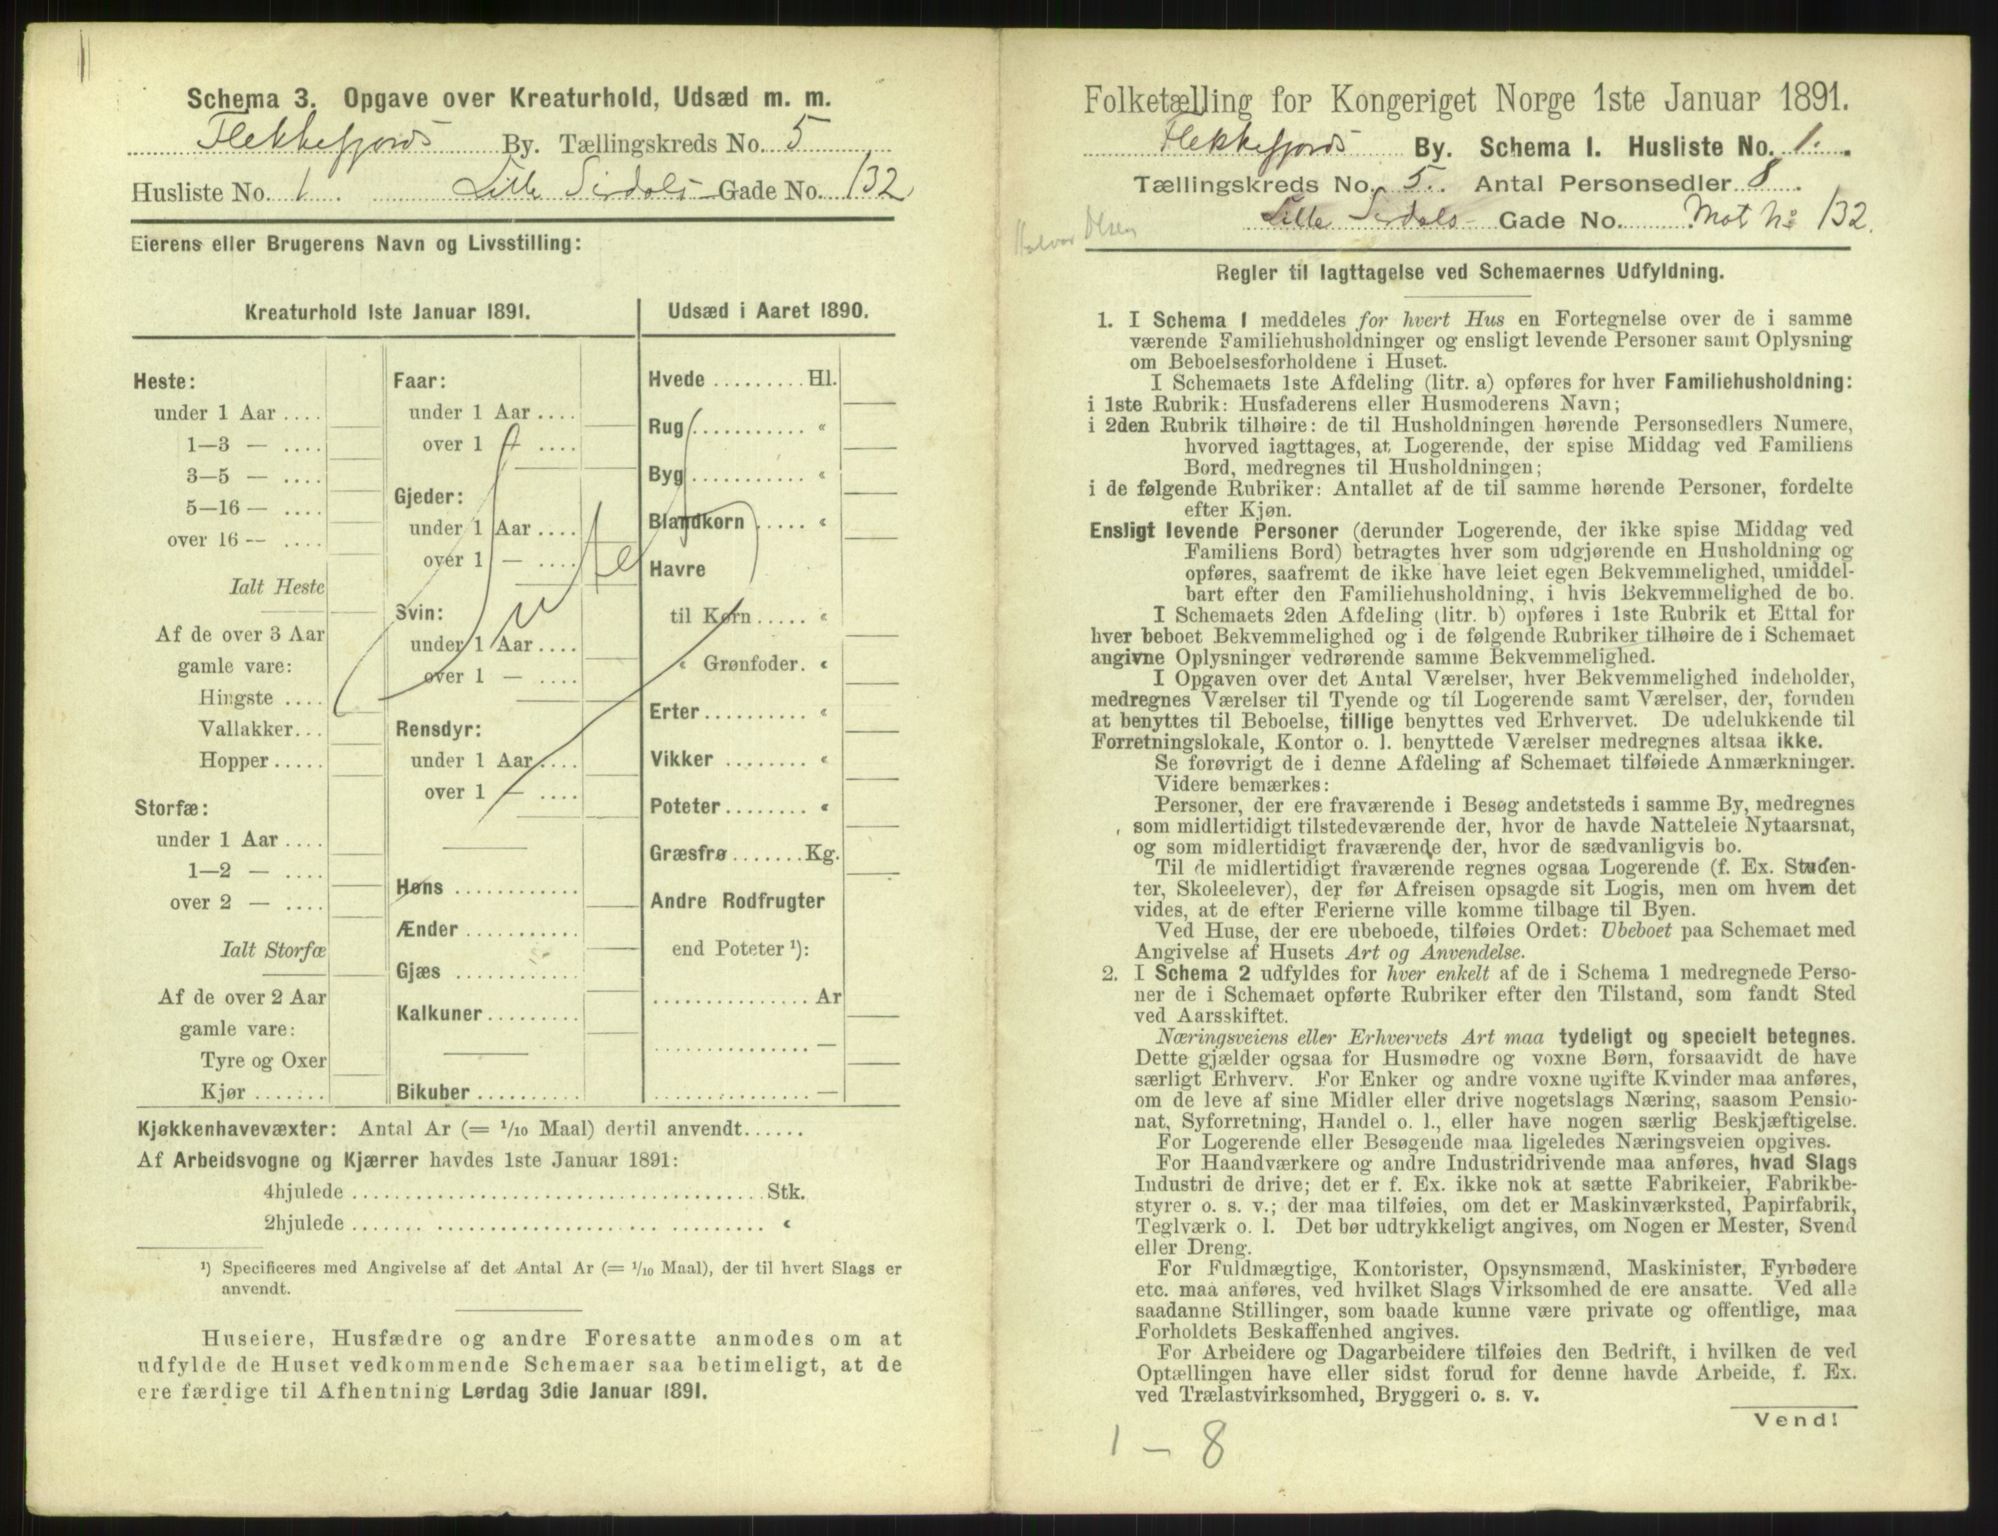 Schema 3. Opgave over Kreaturhold, Udsæd m. m.
Flekkefjords By. Tællingskreds No. 5
Husliste No. 1. Lille Sirdals Gade No. 132
Eierens eller Brugerens Navn og Livsstilling:
Kreaturhold 1ste Januar 1891.
Heste:
under 1 Aar ....
1—3 — ....
3—5 — ....
5—16 — ....
over 16 — ....
Ialt Heste
Af de over 3 Aar
gamle vare:
Hingste ....
Vallakker...
Hopper .....
Storfæ:
under 1 Aar ....
1—2 — ....
over 2 — ....
Ialt Storfæ
Af de over 2 Aar
gamle vare:
Tyre og Oxer
Kjør .......
Faar:
under 1 Aar ....
over 1 — ....
Gjeder:
under 1 Aar ....
over 1 — ....
Svin:
under 1 Aar ....
over 1 — ....
Rensdyr:
under 1 Aar ....
over 1 — ....
Høns ............
Ænder ...........
Gjæs ............
Kalkuner.........
Bikuber ..........
Udsæd i Aaret 1890.
Hvede .........Hl.
Rug ........... «
Byg ........... «
Blandkorn ..... «
Havre
til Korn ..... «
« Grønfoder. «
Erter.......... «
Vikker ........ «
Poteter ....... «
Græsfrø .......Kg.
Andre Rodfrugter
end Poteter ¹):
............... Ar
............... —
............... —
Kjøkkenhavevæxter: Antal Ar (= 1/10 Maal) dertil anvendt......
Af Arbeidsvogne og Kjærrer havdes 1ste Januar 1891:
4hjulede ........................................ Stk.
2hjulede ........................................ «
¹) Specificeres med Angivelse af det Antal Ar (= 1/10 Maal), der til hvert Slags er
anvendt.
Huseiere, Husfædre og andre Foresatte anmodes om at
udfylde de Huset vedkommende Schemaer saa betimeligt, at de
ere færdige til Afhentning Lørdag 3die Januar 1891.
Folketælling for Kongeriget Norge 1ste Januar 1891.
Flekkefjords By. Schema I. Husliste No. 1.
Tællingskreds No. 5. Antal Personsedler 8.
Lille Sirdals Gade No. Mat No 132.
Halvor Olsen
Regler til Iagttagelse ved Schemaernes Udfyldning.
1. I Schema 1 meddeles for hvert Hus en Fortegnelse over de i samme
værende Familiehusholdninger og ensligt levende Personer samt Oplysning
om Beboelsesforholdene i Huset.
I Schemaets 1ste Afdeling (litr. a) opføres for hver Familiehusholdning:
i 1ste Rubrik: Husfaderens eller Husmoderens Navn;
i 2den Rubrik tilhøire: de til Husholdningen hørende Personsedlers Numere,
hvorved iagttages, at Logerende, der spise Middag ved Familiens
Bord, medregnes til Husholdningen;
i de følgende Rubriker: Antallet af de til samme hørende Personer, fordelte
efter Kjøn.
Ensligt levende Personer (derunder Logerende, der ikke spise Middag ved
Familiens Bord) betragtes hver som udgjørende en Husholdning og
opføres, saafremt de ikke have leiet egen Bekvemmelighed, umiddel-
bart efter den Familiehusholdning, i hvis Bekvemmelighed de bo.
I Schemaets 2den Afdeling (litr. b) opføres i 1ste Rubrik et Ettal for
hver beboet Bekvemmelighed og i de følgende Rubriker tilhøire de i Schemaet
angivne Oplysninger vedrørende samme Bekvemmelighed.
I Opgaven over det Antal Værelser, hver Bekvemmelighed indeholder,
medregnes Værelser til Tyende og til Logerende samt Værelser, der, foruden
at benyttes til Beboelse, tillige benyttes ved Erhvervet. De udelukkende til
Forretningslokale, Kontor o. l. benyttede Værelser medregnes altsaa ikke.
Se forøvrigt de i denne Afdeling af Schemaet tilføiede Anmærkninger.
Videre bemærkes:
Personer, der ere fraværende i Besøg andetsteds i samme By, medregnes
som midlertidigt tilstedeværende der, hvor de havde Natteleie Nytaarsnat,
og som midlertidigt fraværende der, hvor de sædvanligvis bo.
Til de midlertidigt fraværende regnes ogsaa Logerende (f. Ex. Studen-
ter, Skoleelever), der før Afreisen opsagde sit Logis, men om hvem det
vides, at de efter Ferierne ville komme tilbage til Byen.
Ved Huse, der ere ubeboede, tilføies Ordet: Ubeboet paa Schemaet med
Angivelse af Husets Art og Anvendelse.
2. I Schema 2 udfyldes for hver enkelt af de i Schema 1 medregnede Perso-
ner de i Schemaet opførte Rubriker efter den Tilstand, som fandt Sted
ved Aarsskiftet.
Næringsveiens eller Erhvervets Art maa tydeligt og specielt betegnes.
Dette gjælder ogsaa for Husmødre og voxne Børn, forsaavidt de have
særligt Erhverv. For Enker og andre voxne ugifte Kvinder maa anføres,
om de leve af sine Midler eller drive nogetslags Næring, saasom Pensio-
nat, Syforretning, Handel o. l., eller have nogen særlig Beskjæftigelse.
For Logerende eller Besøgende maa ligeledes Næringsveien opgives.
For Haandværkere og andre Industridrivende maa anføres, hvad Slags
Industri de drive; det er f. Ex. ikke nok at sætte Fabrikeier, Fabrikbe-
styrer o. s. v.; der maa tilføies, om det er Maskinværksted, Papirfabrik,
Teglværk o. l. Det bør udtrykkeligt angives, om Nogen er Mester, Svend
eller Dreng.
For Fuldmægtige, Kontorister, Opsynsmænd, Maskinister, Fyrbødere
etc. maa anføres, ved hvilket Slags Virksomhed de ere ansatte. Ved alle
saadanne Stillinger, som baade kunne være private og offentlige, maa
Forholdets Beskaffenhed angives.
For Arbeidere og Dagarbeidere tilføies den Bedrift, i hvilken de ved
Optællingen have eller sidst forud for denne havde Arbeide, f. Ex.
ved Trælastvirksomhed, Bryggeri o. s. v.
Vend!
1 – 8